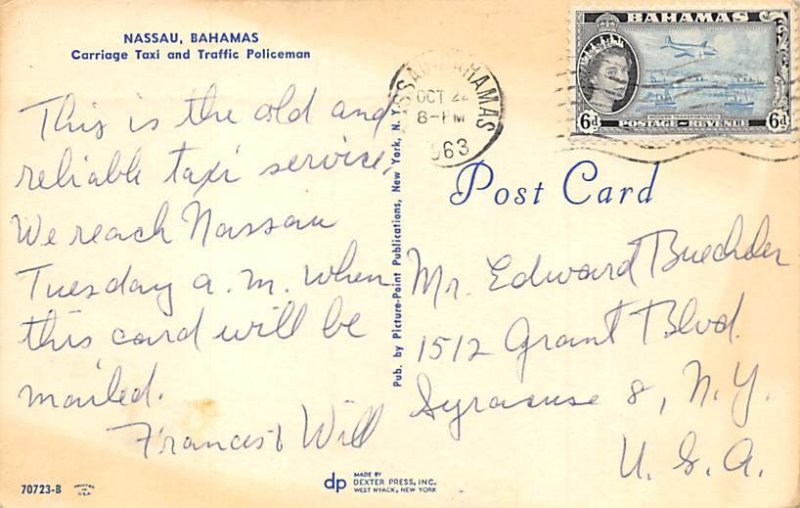 NASSAU, BAHAMAS
Carriage Taxi and Traffic Policeman
This is the old and
reliable taxi service.
We reach Nassau
Tuesday a.m. When
this card will be
mailed.
Frances & Will
70723-B
PRINTED
IN
U.S.A.
Pub. by Picture-Point Publications, New York, N. Y.
dp
MADE BY
DEXTER PRESS, INC.
WEST NYACK, NEW YORK
NASSAU BAHAMAS
OCT 22
8-PM
1963
BAHAMAS
6d
POSTAGE REVENUE
6d
Post Card
Mr. Edward Buechler
1512 Grant Blvd.
Syracuse 8, N.Y.
U.S.A.